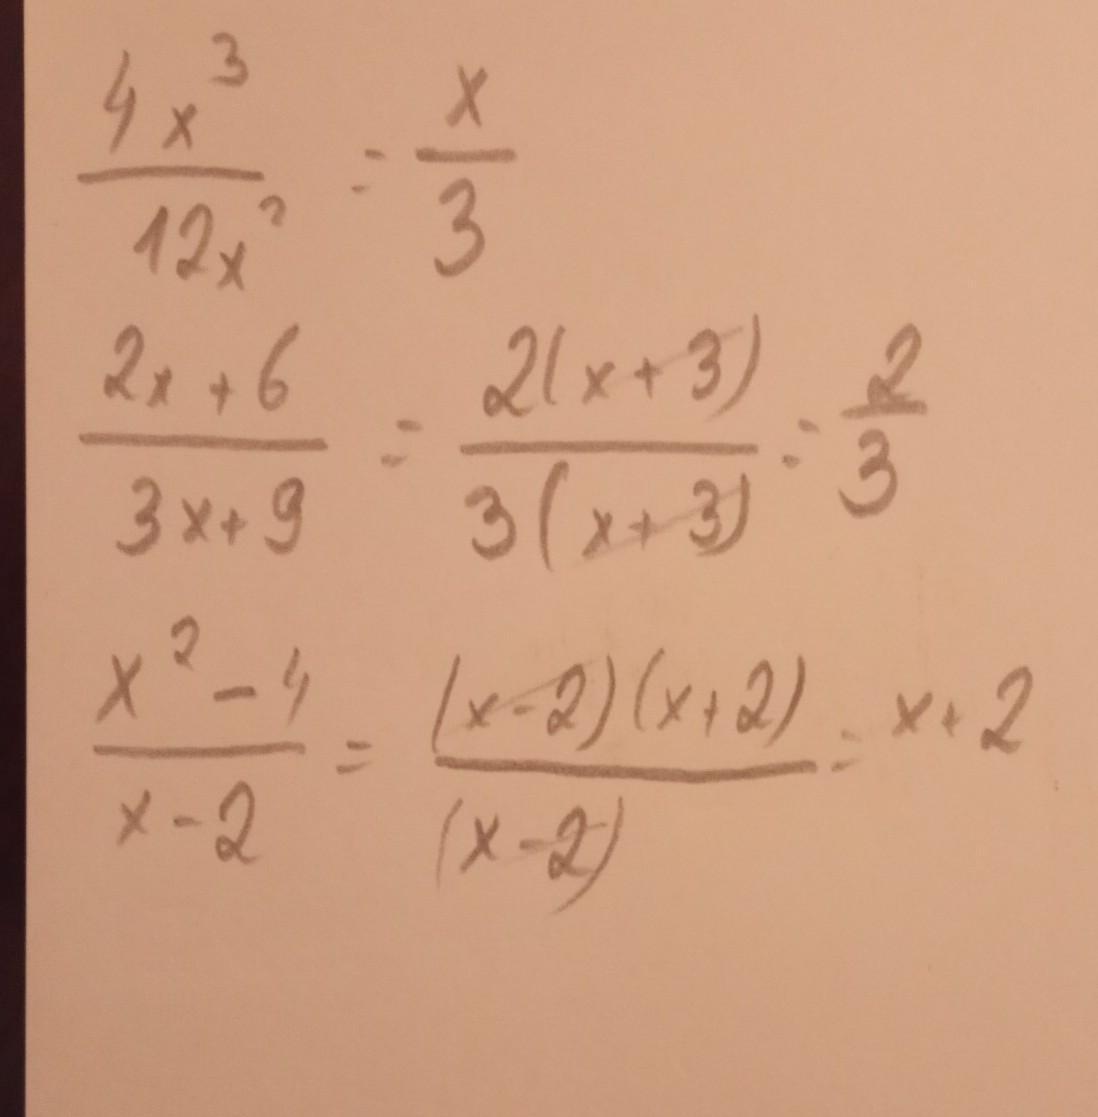 4x³/12x² = x/3
2x+6/3x+9 = 2(x+3)/3(x+3) = 2/3
x²-4/x-2 = (x-2)(x+2)/(x-2) = x+2